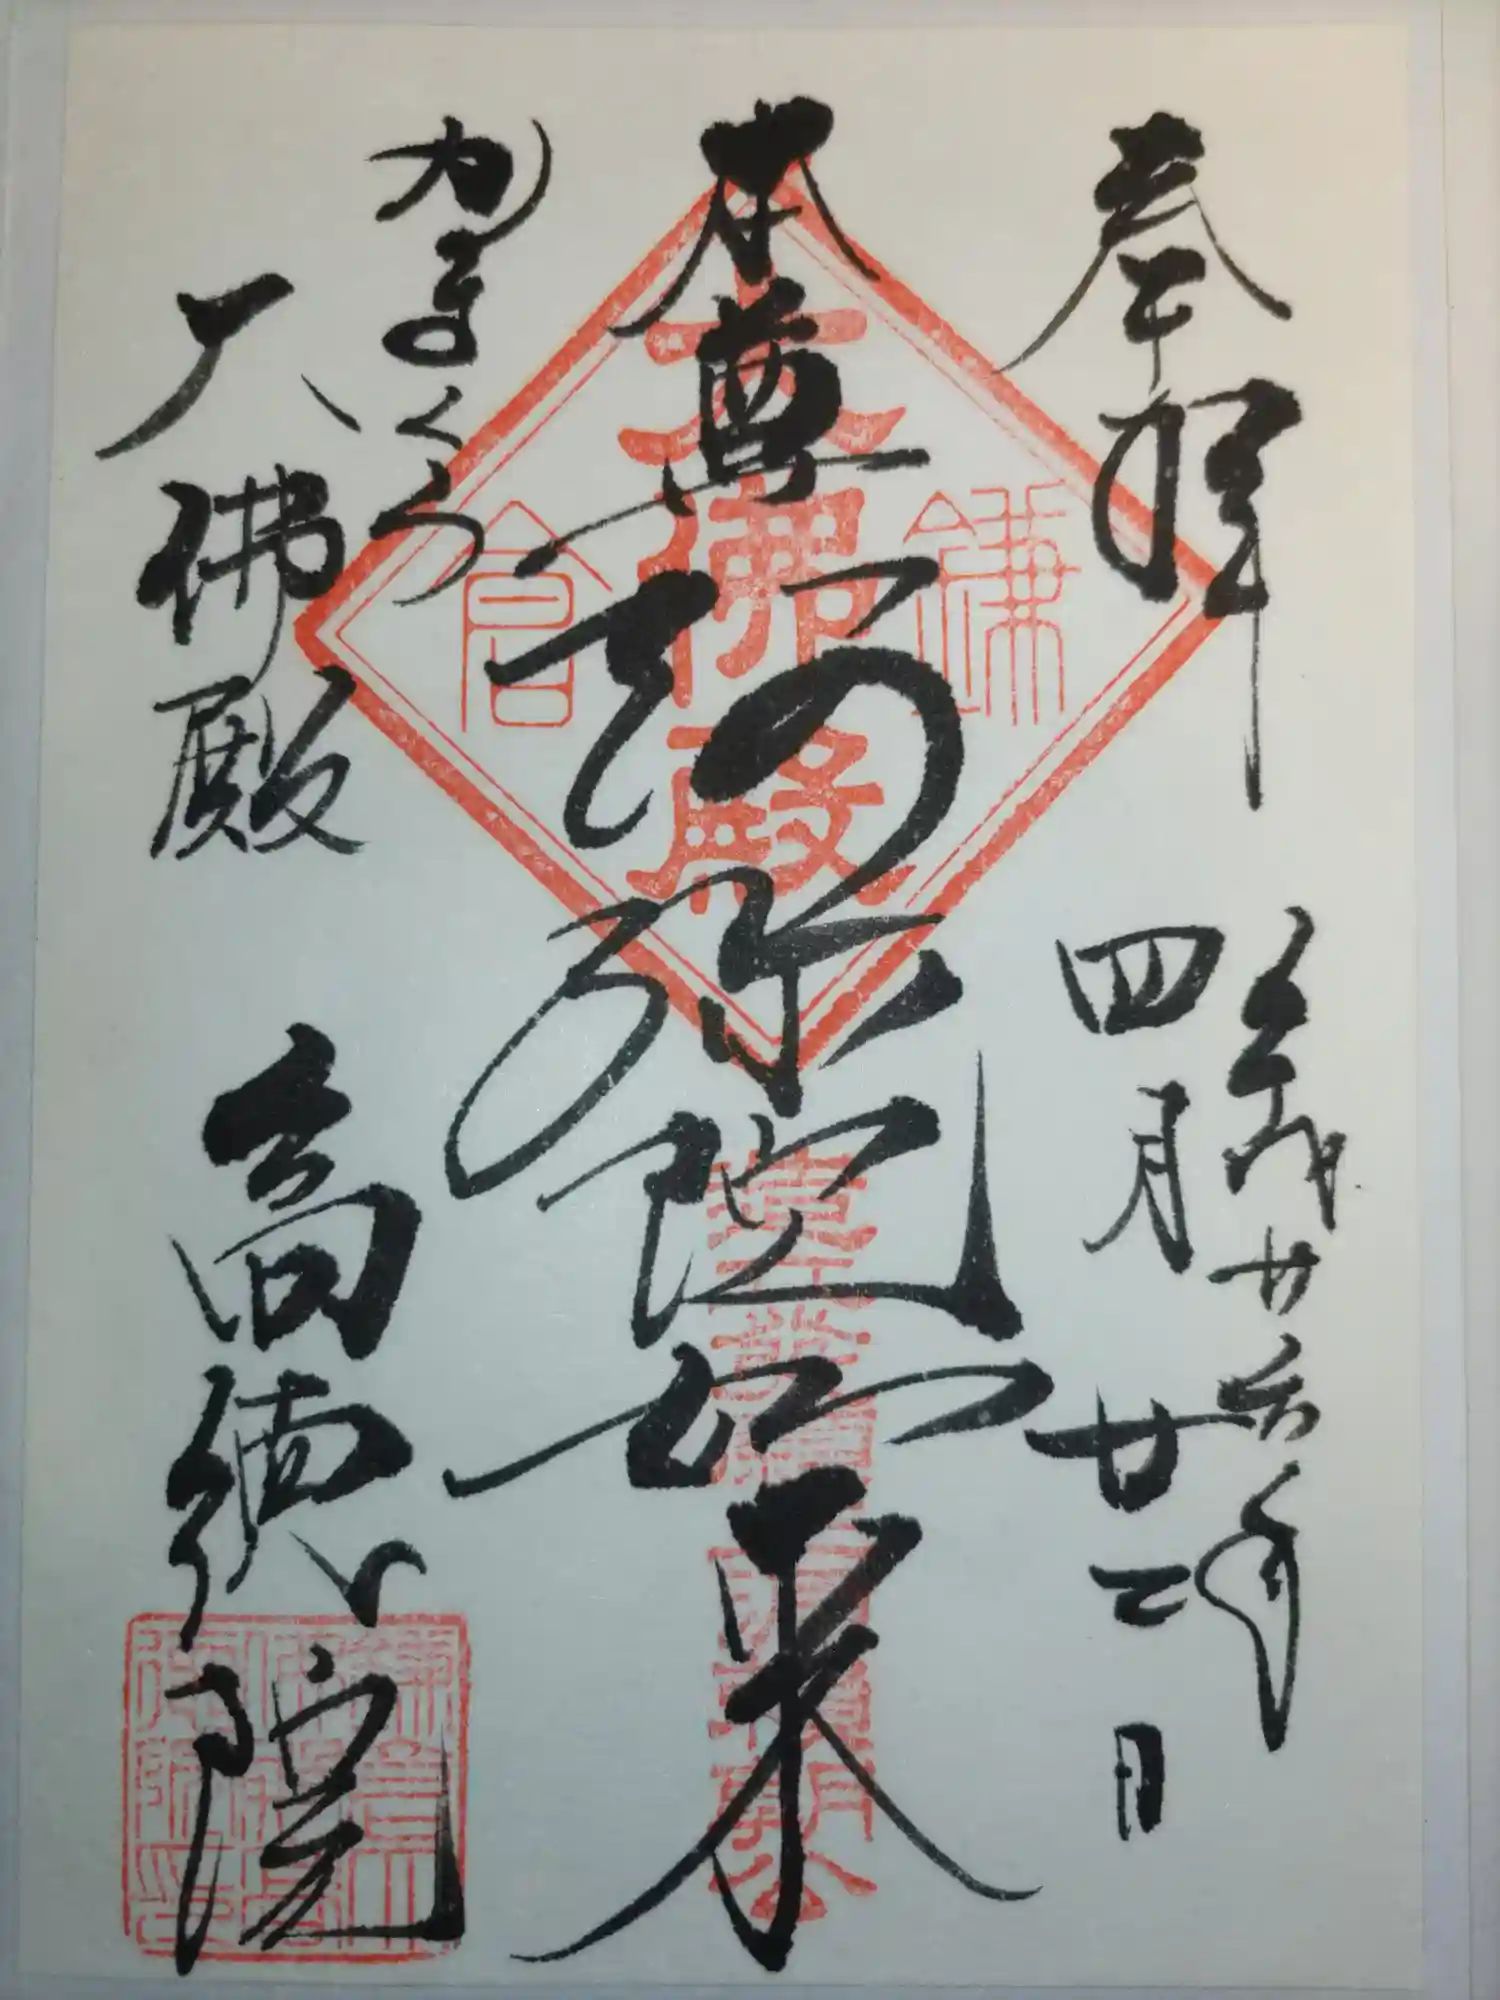 奉拝
平成廿六年
四月廿二日
本尊
阿弥陀如来
かまくら
大佛殿
高徳院
鎌倉
大佛殿
源頼朝公